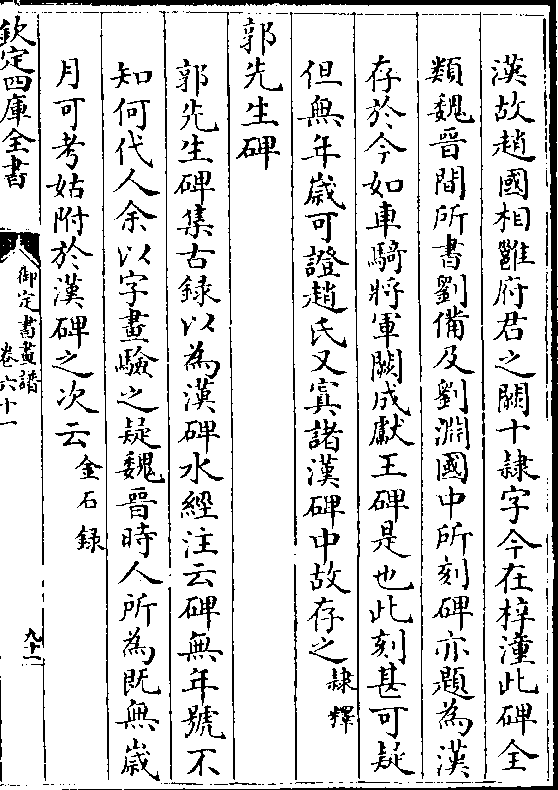 漢故趙國相雝府君之闕十隷字今在梓潼此碑全
類魏晉間所書劉備及劉淵國中所刻碑亦題為漢
存於今如車騎將軍闕成獻王碑是也此刻甚可疑
但無年歲可證趙氏又寘諸漢碑中故存之隷釋
郭先生碑
郭先生碑集古録以為漢碑水經注云碑無年號不
知何代人余以字畫驗之疑魏晉時人所為既無歲
月可考姑附於漢碑之次云金石録
欽定四庫全書
御定書畫譜
卷六十一